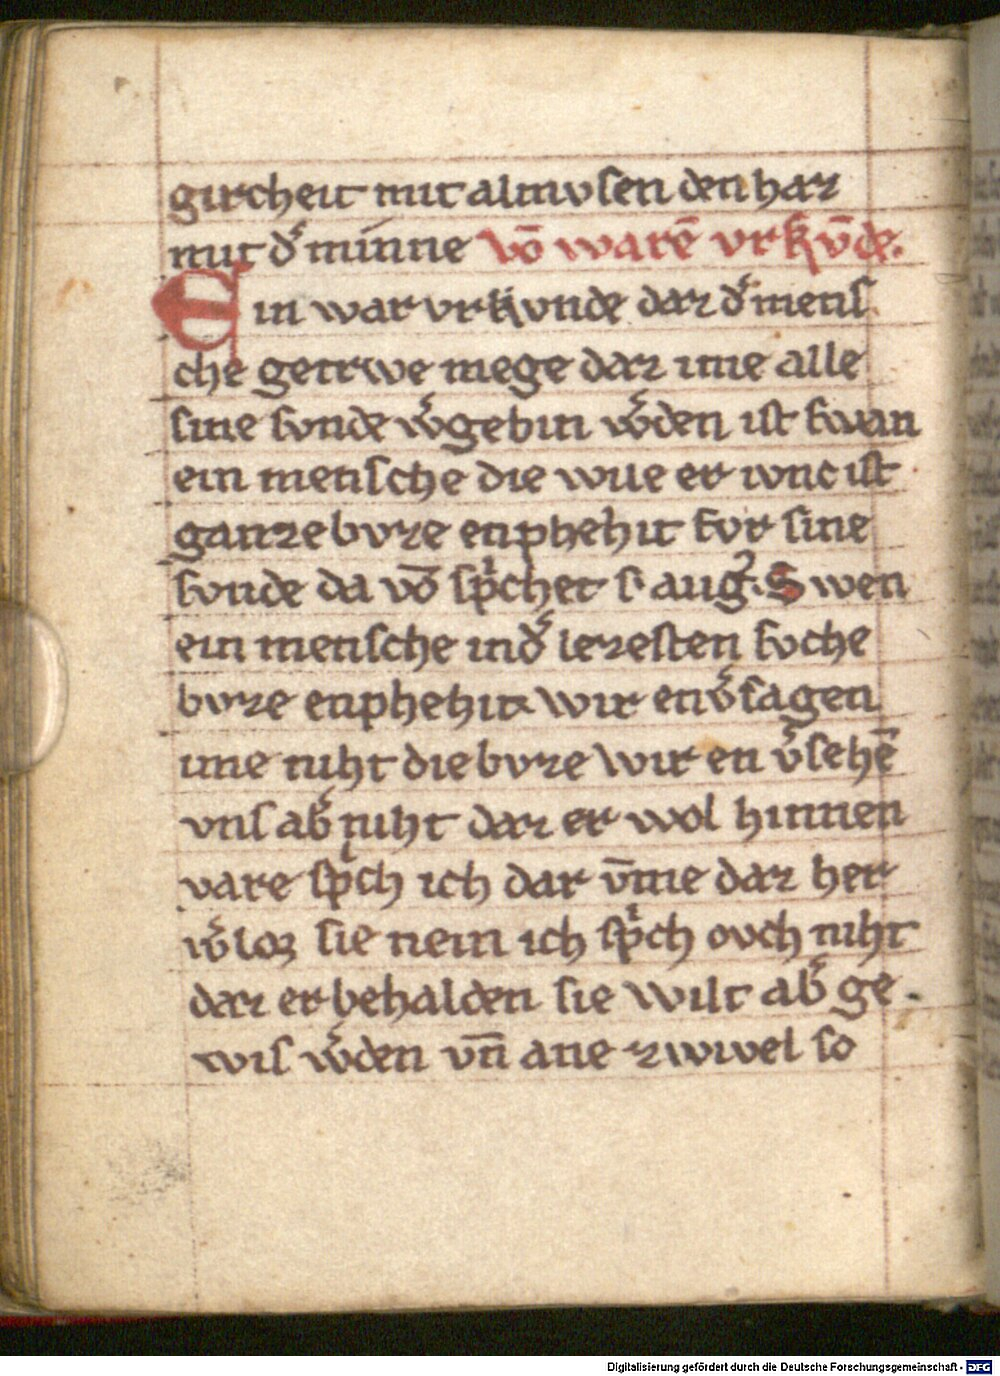 gitcheit mit almvsen den haz
mit d̾ minne Vō warē vrkv̄de.
Ein war vrkvnde daz d̾ mens
che getrwe mege daz ime alle
sine svnde v̾gebin w̾den ist swan
ein mensche die wile er ivnc ist
ganze bvze enphehit vor sine
svnde da vō sp̾chet s. aug᷒. Swen
ein mensche in d̾ lezesten svche
bvze enphehit. wir env̾sagen
ime niht die bvze wir en v̾sehē
vns ab̾ niht daz er wol hinnen
vare sp̾ch ich dar v̄me daz her
v̾loz sie nein ich sp̾ch ovch niht
daz er behalden sie wilt ab̾ ge.
wis w̾den vn̄ ane zwivel so
Digitalisierung gefördert durch die Deutsche Forschungsgemeinschaft - DFG